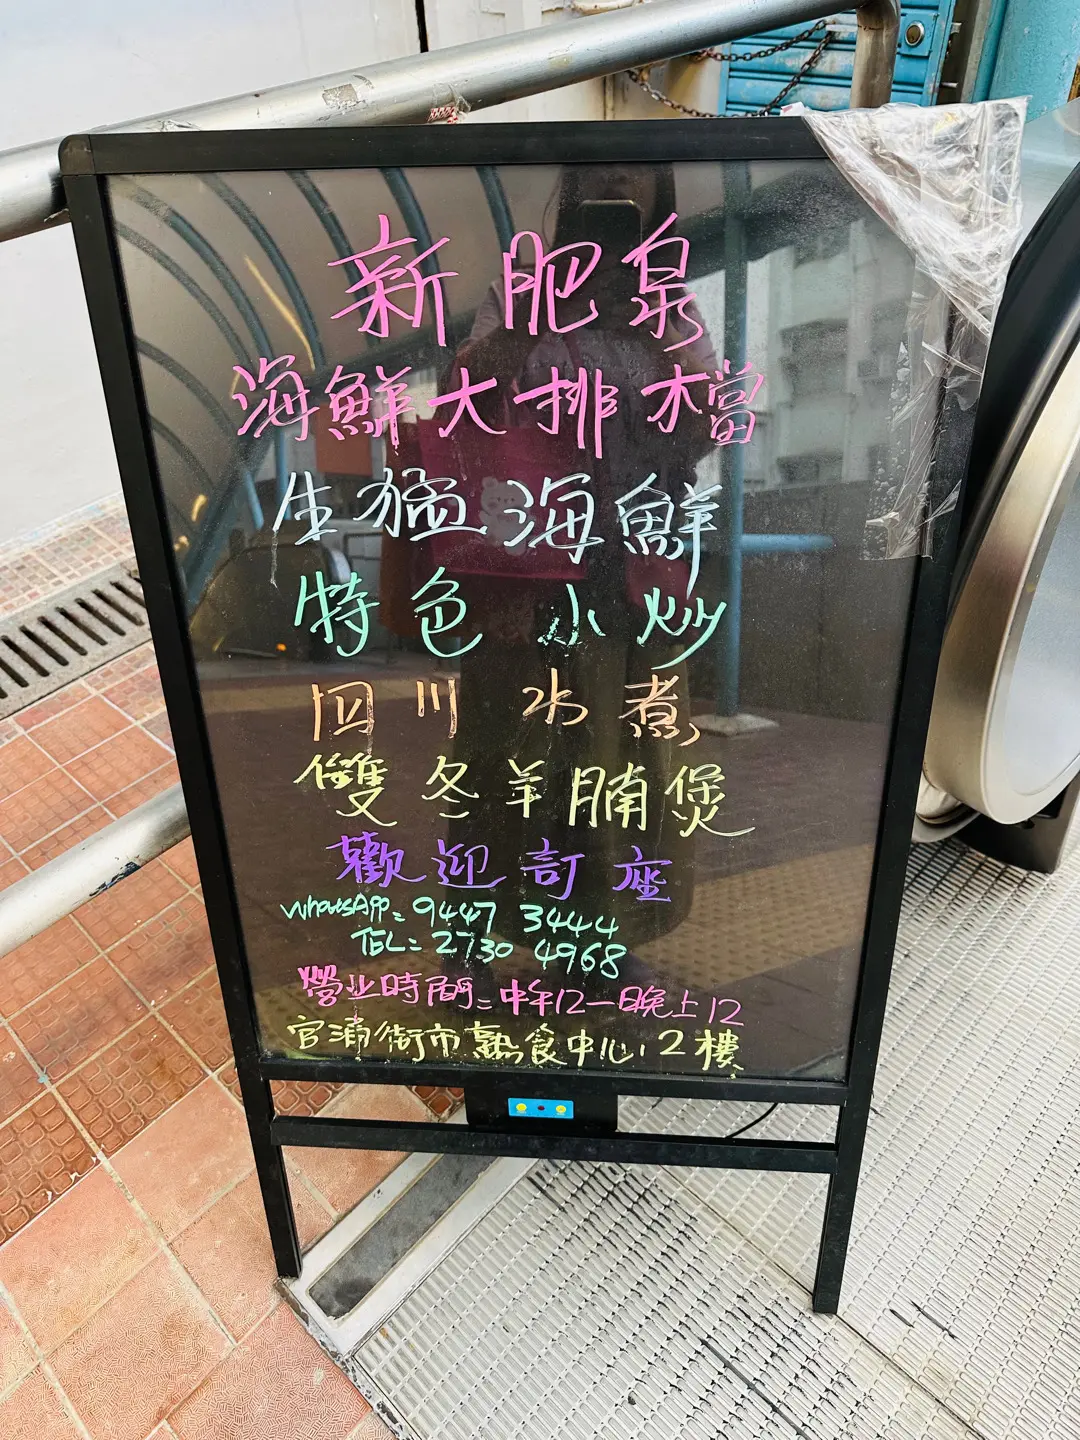 新肥泉
海鮮大排檔
生猛海鮮
特色小炒
四川水煮
雙冬羊腩煲
歡迎訂座
WhatsApp = 9447 3444
TEL = 2730 4968
營业時間 = 中午12一晚上12
官涌街市熟食中心2樓